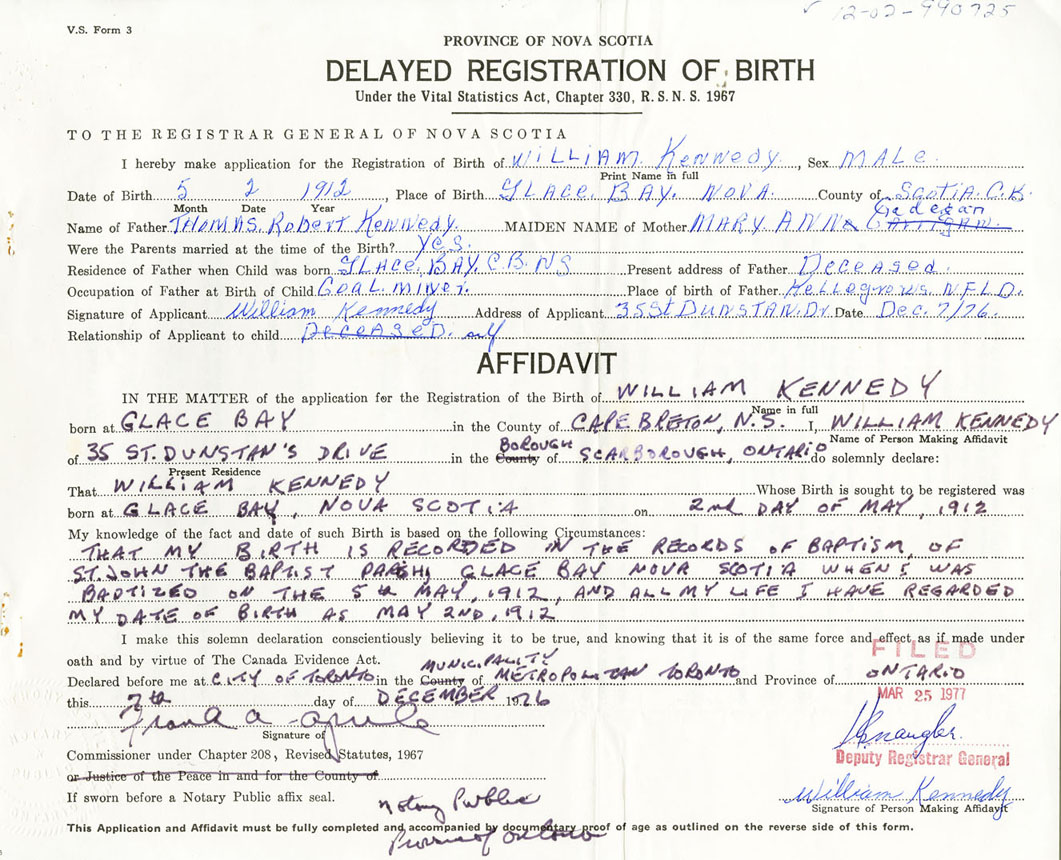 V.S. Form 3
12-02-990725
PROVINCE OF NOVA SCOTIA
DELAYED REGISTRATION OF BIRTH
Under the Vital Statistics Act, Chapter 330, R.S.N.S. 1967
TO THE REGISTRAR GENERAL OF NOVA SCOTIA
I hereby make application for the Registration of Birth of WILLIAM. Kennedy., Sex MALe.
Print Name in full
Date of Birth 5 2 1912, Place of Birth GLACE. BAY. NOVA., County of SCOTIA.C.B.
Month Date Year
Name of Father THOMAS. Robert Kennedy. MAIDEN NAME of Mother MARY ANN
Were the Parents married at the time of the Birth? YES.
Residence of Father when Child was born GLACE. BAY. C.B. NS Present address of Father Deceased.
Occupation of Father at Birth of Child Coal. miner. Place of birth of Father Kellegrews N.F.L.D.
Signature of Applicant William Kennedy Address of Applicant 35 St DUNSTAN.Dr. Date Dec. 7/76.
Relationship of Applicant to child DECEASED.
AFFIDAVIT
IN THE MATTER of the application for the Registration of the Birth of WILLIAM KENNEDY
Name in full
born at GLACE BAY in the County of CAPE BRETON, N.S. I, WILLIAM KENNEDY
Name of Person Making Affidavit
of 35 ST. DUNSTAN'S DRIVE in the County BOROUGH of SCARBOROUGH, ONTARIO do solemnly declare:
Present Residence
That WILLIAM KENNEDY Whose Birth is sought to be registered was
born at GLACE BAY, NOVA SCOTIA on 2nd DAY OF MAY, 1912
My knowledge of the fact and date of such Birth is based on the following Circumstances:
THAT MY BIRTH IS RECORDED IN THE RECORDS OF BAPTISM, OF
ST. JOHN THE BAPTIST PARISH, GLACE BAY NOVA SCOTIA WHEN I WAS
BAPTIZED ON THE 5th MAY, 1912, AND ALL MY LIFE I HAVE REGARDED
MY DATE OF BIRTH AS MAY 2ND, 1912
I make this solemn declaration conscientiously believing it to be true, and knowing that it is of the same force and effect as if made under
oath and by virtue of The Canada Evidence Act.
FILED
Declared before me at CITY OF TORONTO in the County MUNICIPALITY of METROPOLITAN TORONTO and Province of ONTARIO
MAR 25 1977
this 7th day of DECEMBER 1976
Frank A.
Signature of
Commissioner under Chapter 208, Revised Statutes, 1967
Deputy Registrar General
or Justice of the Peace in and for the County of
If sworn before a Notary Public affix seal.
Notary Public
William Kennedy
Signature of Person Making Affidavit
This Application and Affidavit must be fully completed and accompanied by documentary proof of age as outlined on the reverse side of this form.
Province of Ontario